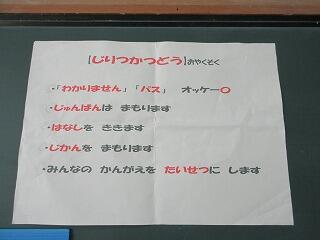 【じりつかつどう】おやくそく
・「わかりません」「パス」　オッケー〇
・じゅんばんは　まもります
・はなしを　ききます
・じかんを　まもります
・みんなの　かんがえを　たいせつに　します